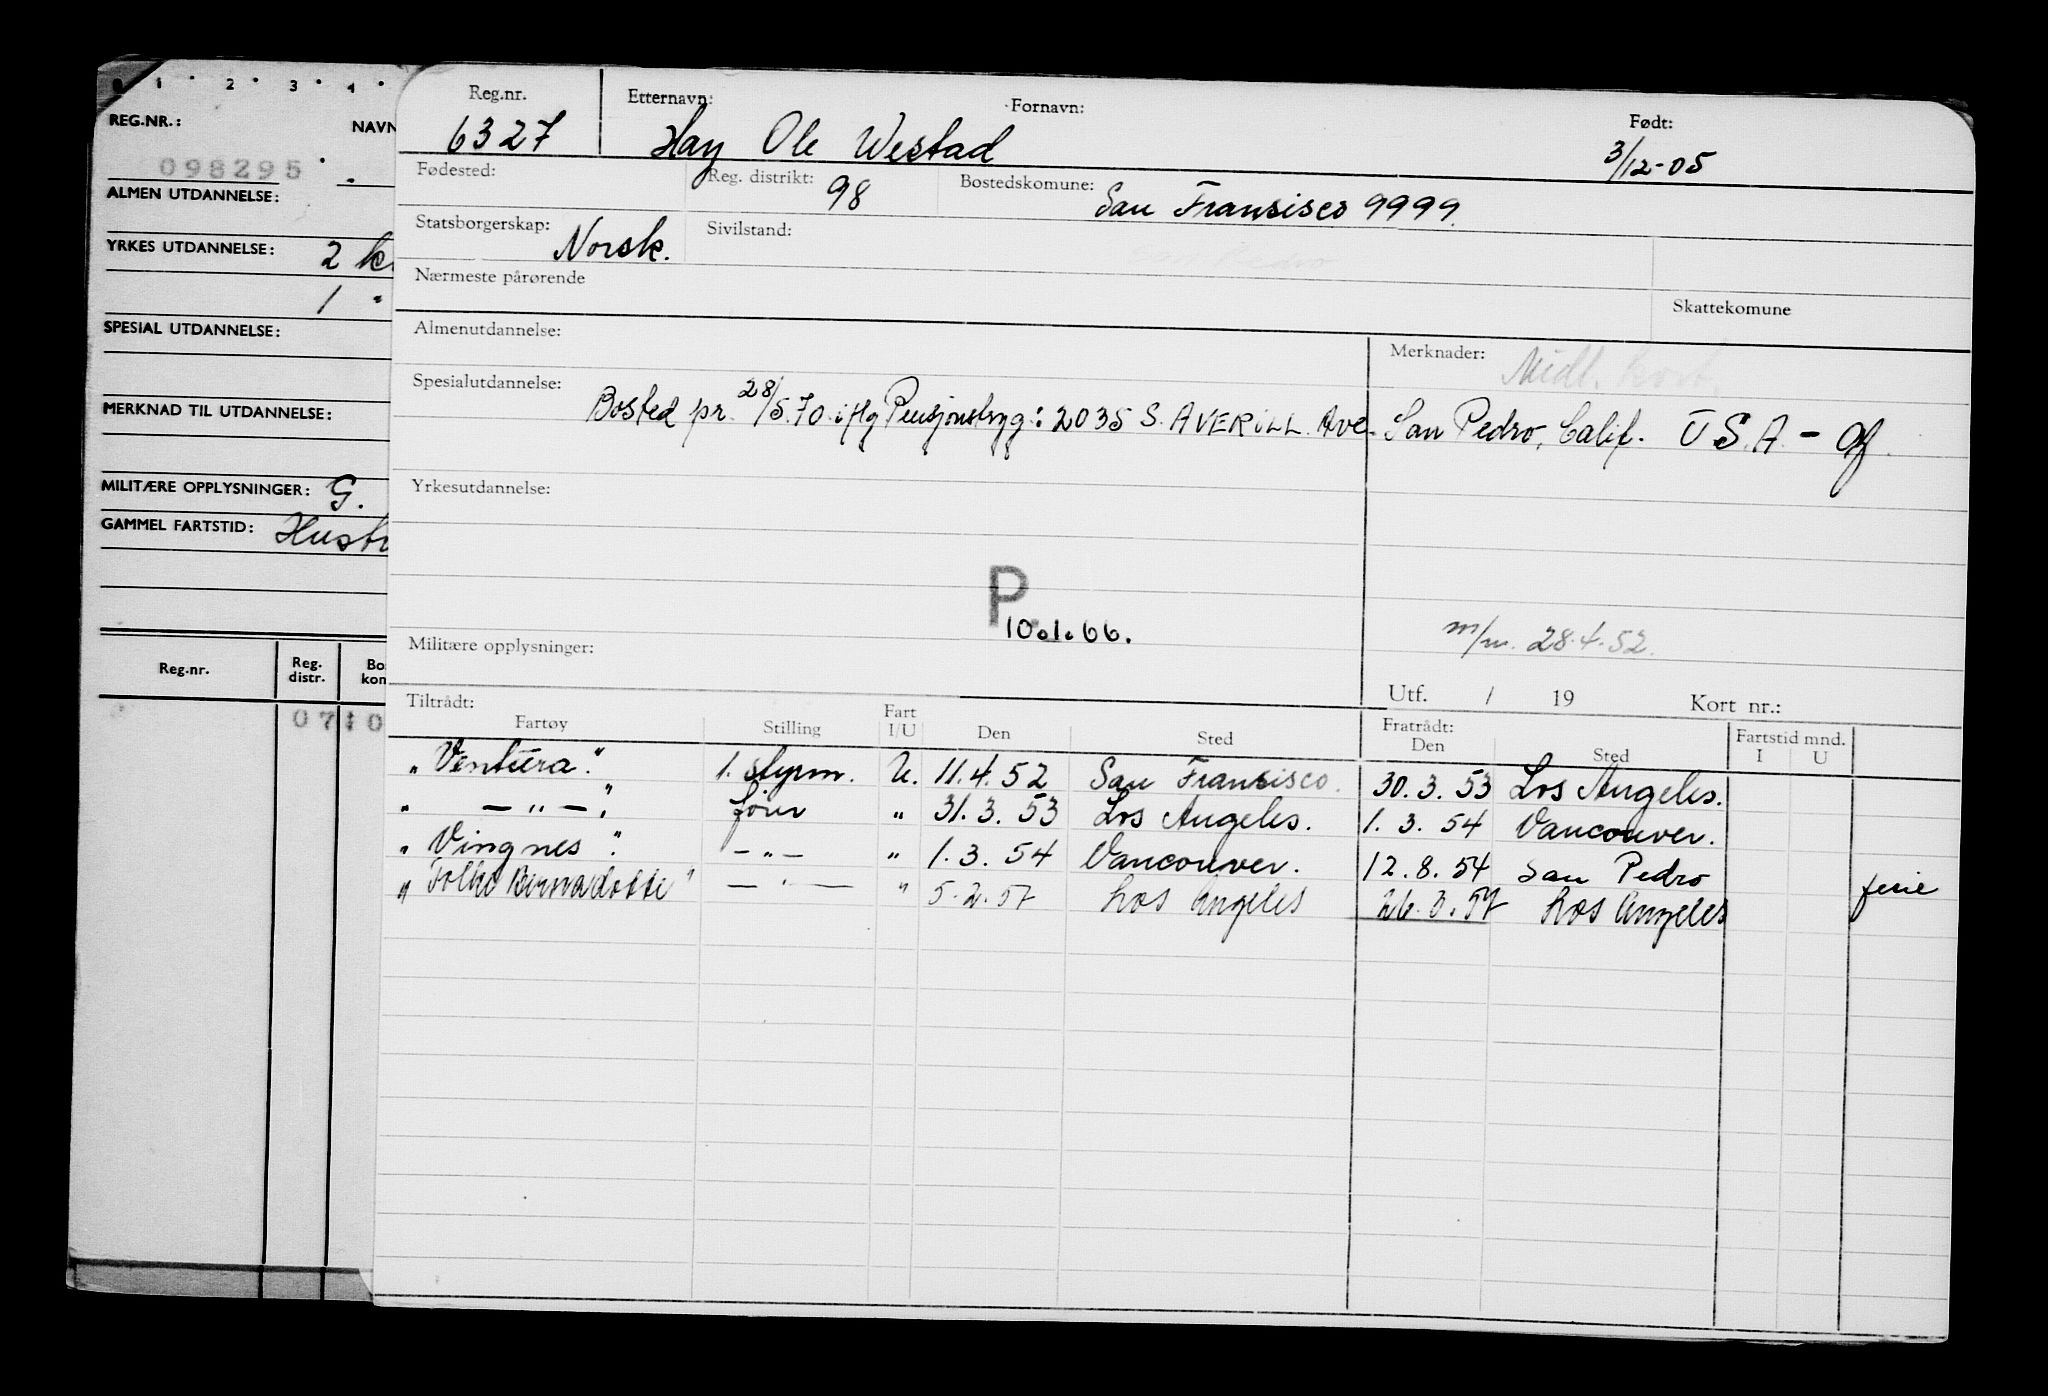 1 2 3 4
REG.NR.:
NAVN
098295
ALMEN UTDANNELSE:
YRKES UTDANNELSE: 2 k
1 "
SPESIAL UTDANNELSE:
MERKNAD TIL UTDANNELSE:
MILITÆRE OPPLYSNINGER: G.
GAMMEL FARTSTID: Hust
Reg.nr. Reg. distr. Bo. kom
07 0
Reg.nr. Etternavn: Fornavn: Født:
6327 Hay Ole Westad 3/12-05
Fødested: Reg. distrikt: 98 Bostedskomune: San Fransisco 9999.
Statsborgerskap: Norsk. Sivilstand:
San Pedro
Nærmeste pårørende
Skattekomune
Almenutdannelse: Merknader: Midl. kort.
Spesialutdannelse: Bosted pr. 28/5.70 iflg Pensjonstryg.: 2035 S. AVERILL Ave. San Pedro, Calif. U.S.A. -
Yrkesutdannelse:
P.
10.1.66.
m/m. 28.4.52.
Militære opplysninger:
Utf. / 19 Kort nr.:
Tiltrådt: Fratrådt:
Fartøy Stilling Fart I/U Den Sted Den Sted Fartstid mnd. I U
"Ventura". 1. styrm. U. 11.4.52 San Fransisco. 30.3.53 Los Angeles.
" — " — ". fører " 31.3.53 Los Angeles. 1.3.54 Vancouver.
"Vingnes". — " — " 1.3.54 Vancouver. 12.8.54 San Pedro ferie
"Folke Bernadotte" — " — " 5.2.57 Los Angeles 26.3.57 Los Angeles